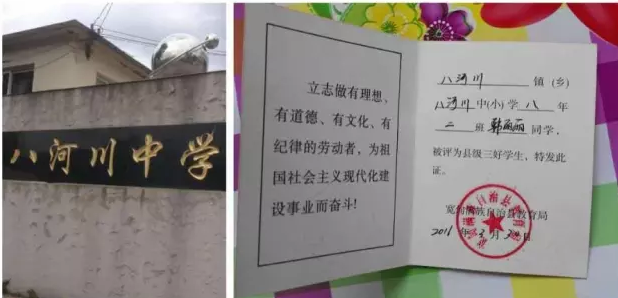 八河川中学
立志做有理想、
有道德、有文化、有
纪律的劳动者，为祖
国社会主义现代化建
设事业而奋斗!
八河川 镇 (乡)
八河川 中(小) 学 八 年
二 班 韩丽丽 同学，
被评为县级三好学生，特发此
证。
宽甸满族自治县教育局
2011 年 3 月 日